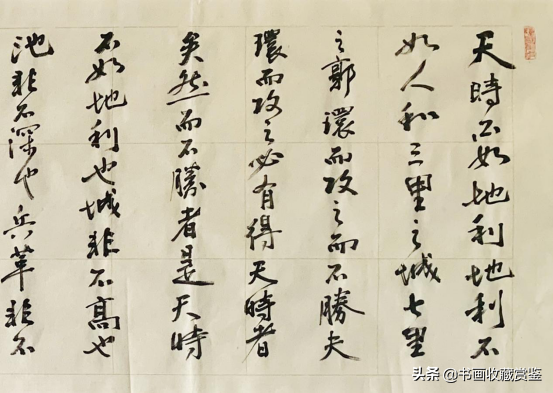 天時不如地利地利不
如人和三里之城七里
之郭環而攻之而不勝夫
環而攻之必有得天時者
矣然而不勝者是天時
不如地利也城非不高也
池非不深也兵革非不
头条 @书画收藏赏鉴